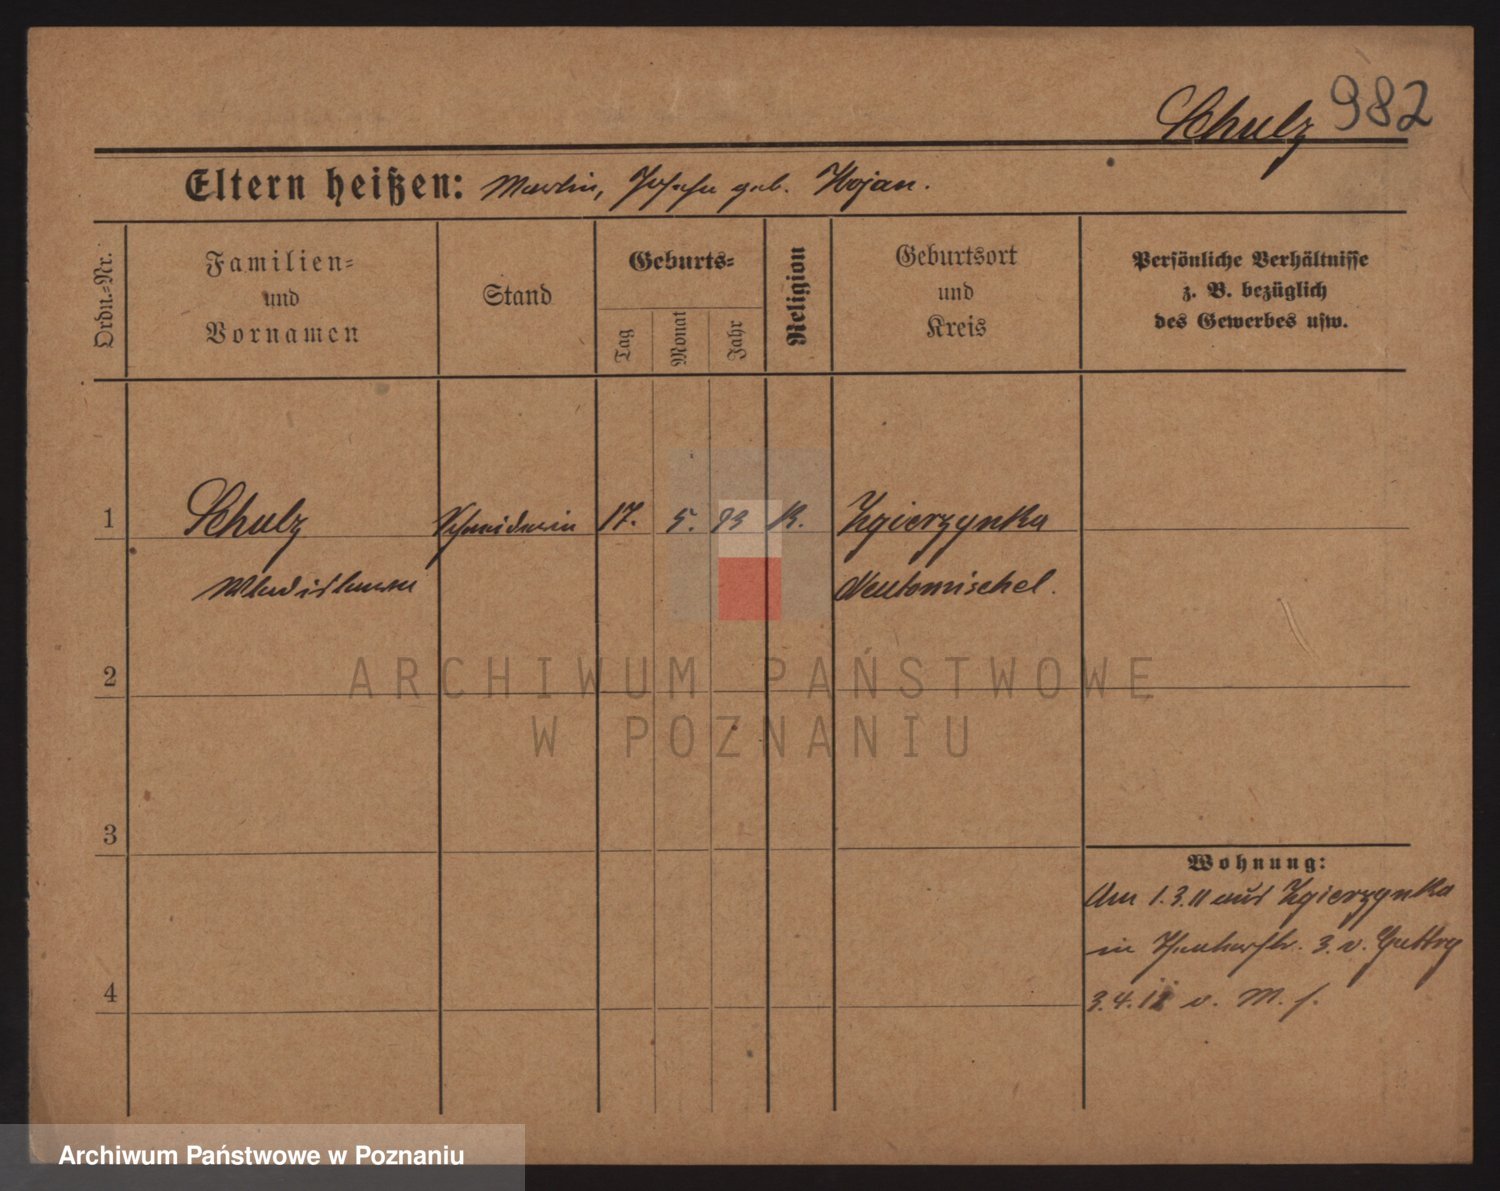 Schulz 982
Eltern heißen: Martin, Josefa geb. Hojan.
Ordn.=Nr.
Familien=
und
Vornamen
Stand
Geburts=
Tag
Monat
Jahr
Religion
Geburtsort
und
Kreis
Persönliche Verhältnisse
z. B. bezüglich
des Gewerbes usw.
1 Schulz Schneiderin 17. 5. 93 K. Zgierzynka
Wladislawa Neutomischel.
2
ARCHIWUM PAŃSTWOWE
W POZNANIU
3
Wohnung:
Am 1.3.11 aus Zgierzynka
in 3. v.
4
3.4.11 v. M. f.
Archiwum Państwowe w Poznaniu